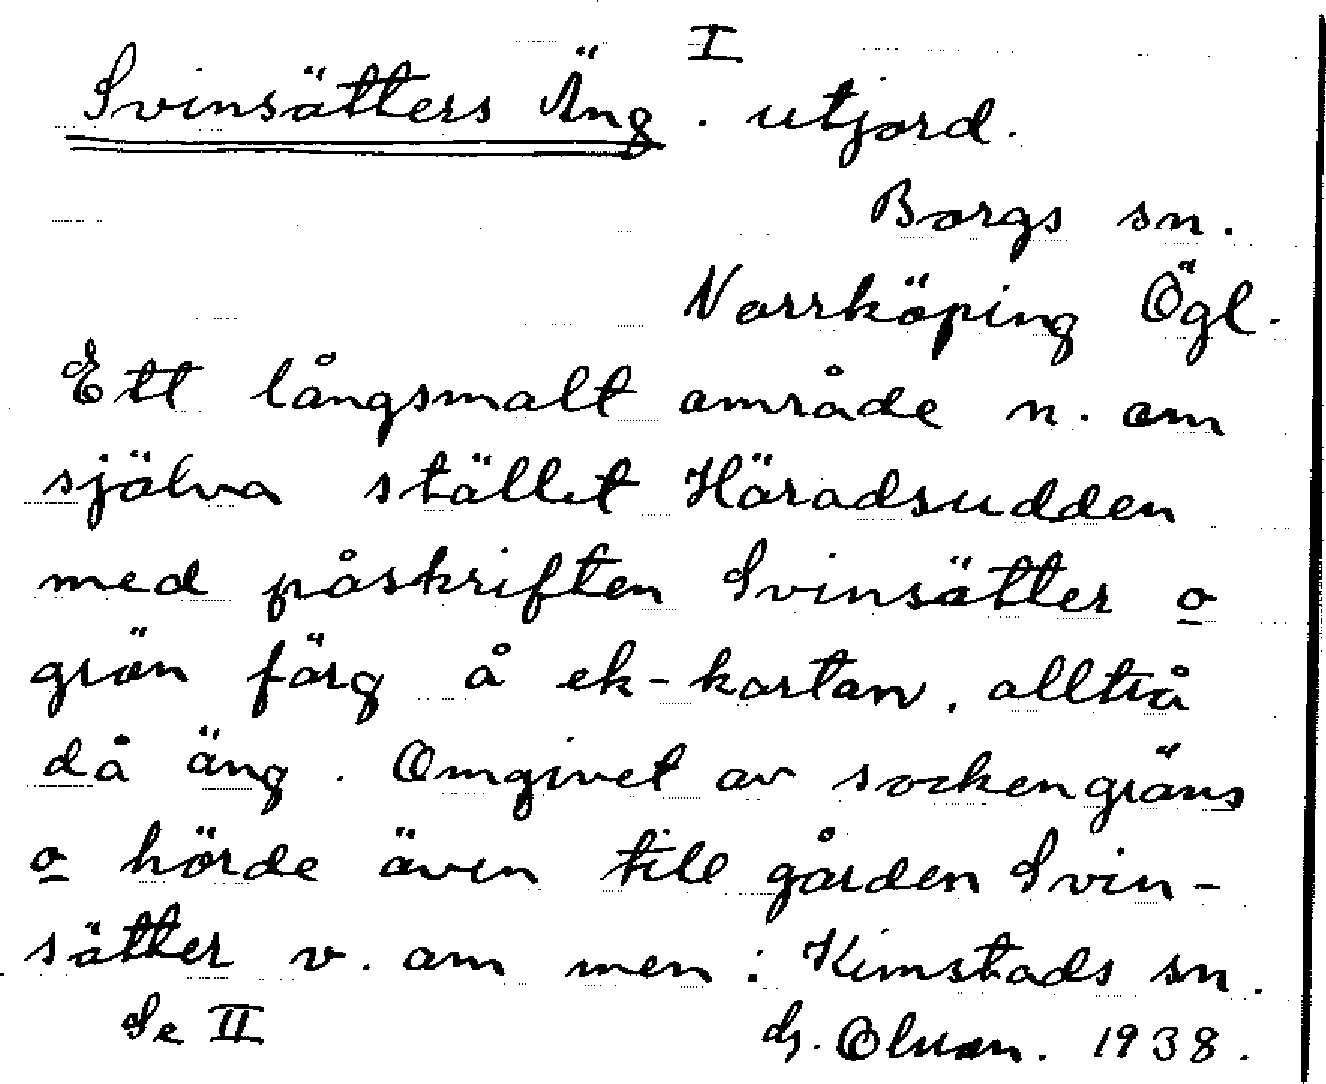 I
Svinsätters Äng. utjord.
Borgs sn.
Norrköping Ögl.
Ett långsmalt område n. om
själva stället Häradsudden
med påskriften Svinsätter o
grön färg å ek-kartan, alltså
då äng. Omgivet av sockengräns
o hörde även till gården Svin-
sätter v. om men i Kimstads sn.
Se II
Olsson. 1938.